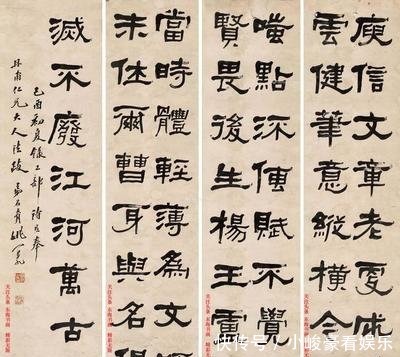 庾信文章老更成
雲健筆意縱橫今
嗤點流傳賦不覺
賢畏後生楊王盧
當時體輕薄為文
未休爾曹身與名
滅不廢江河萬古
己酉初夏錄工部詩
仁兄大人法
快传号/小峻豪看娱乐